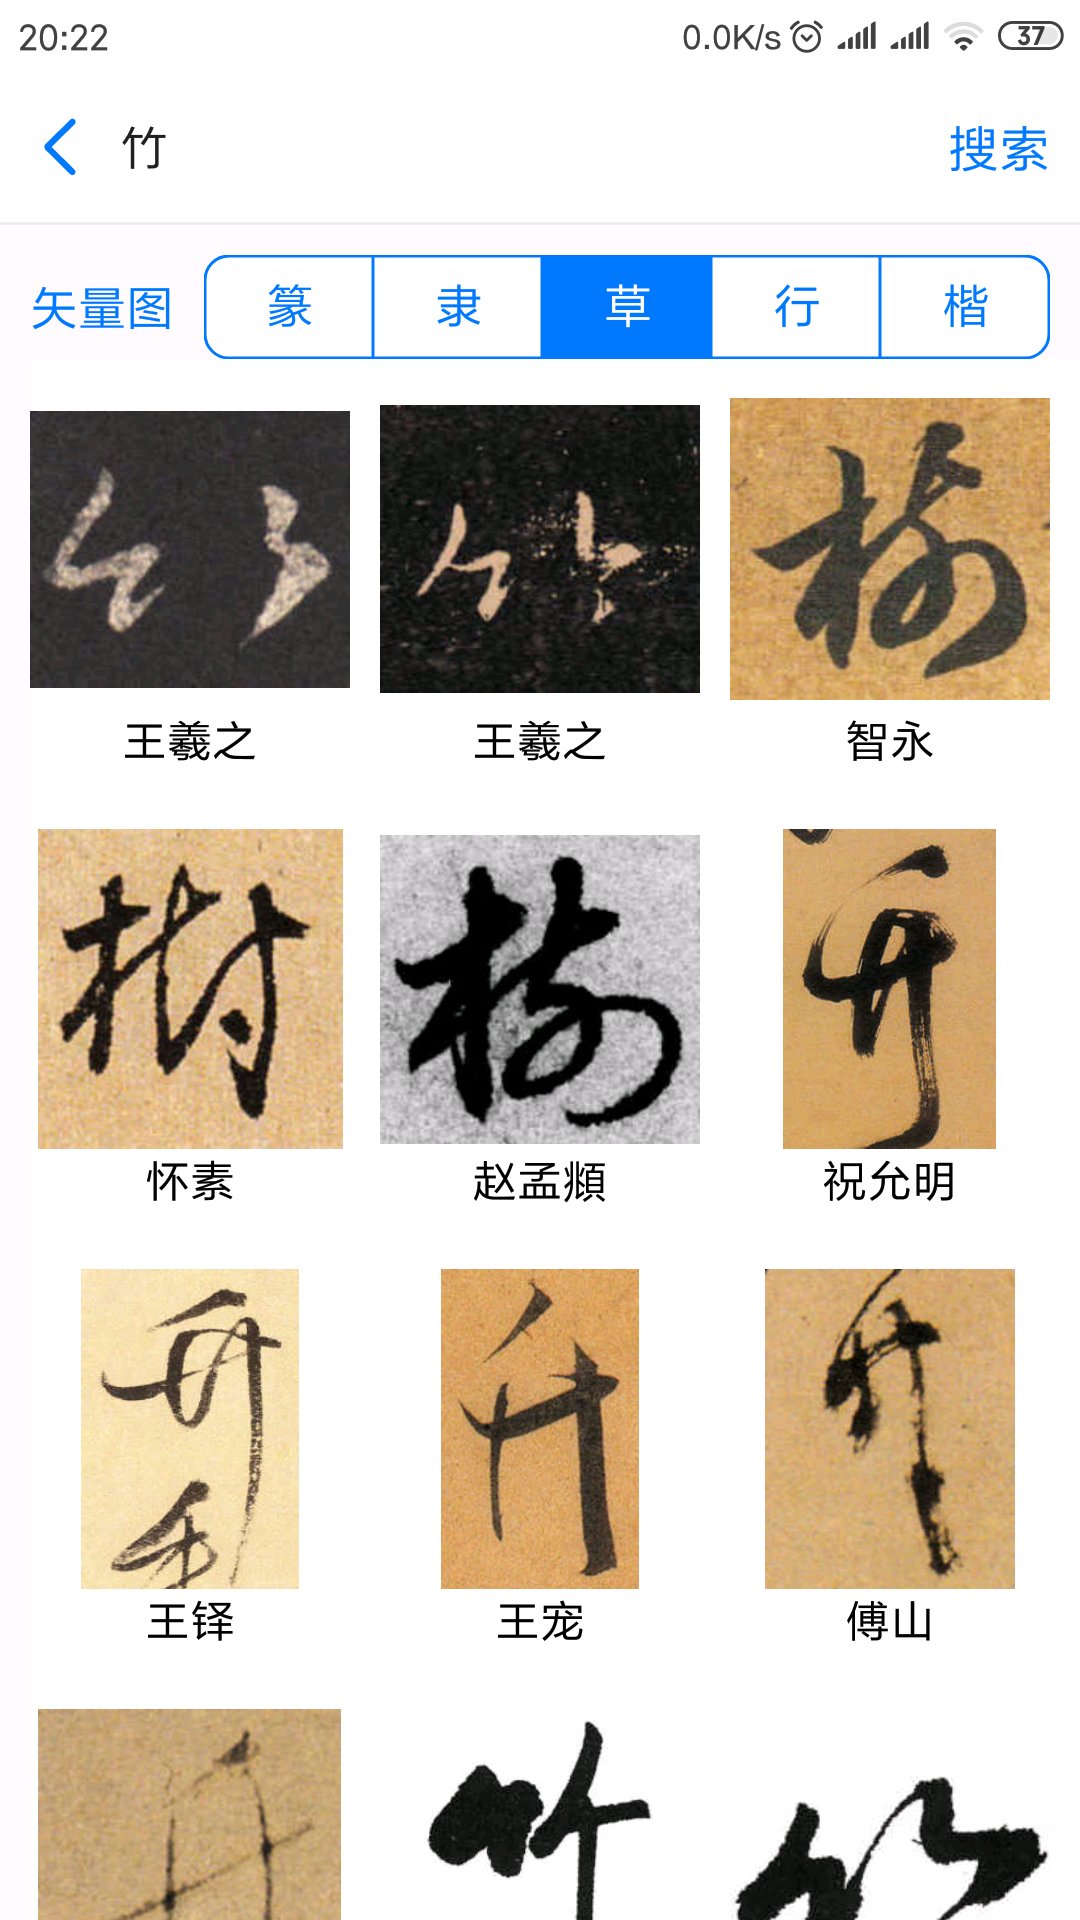 20:22 0.0K/s 37
竹 搜索
矢量图 篆 隶 草 行 楷
王羲之 王羲之 智永
怀素 赵孟頫 祝允明
王铎 王宠 傅山